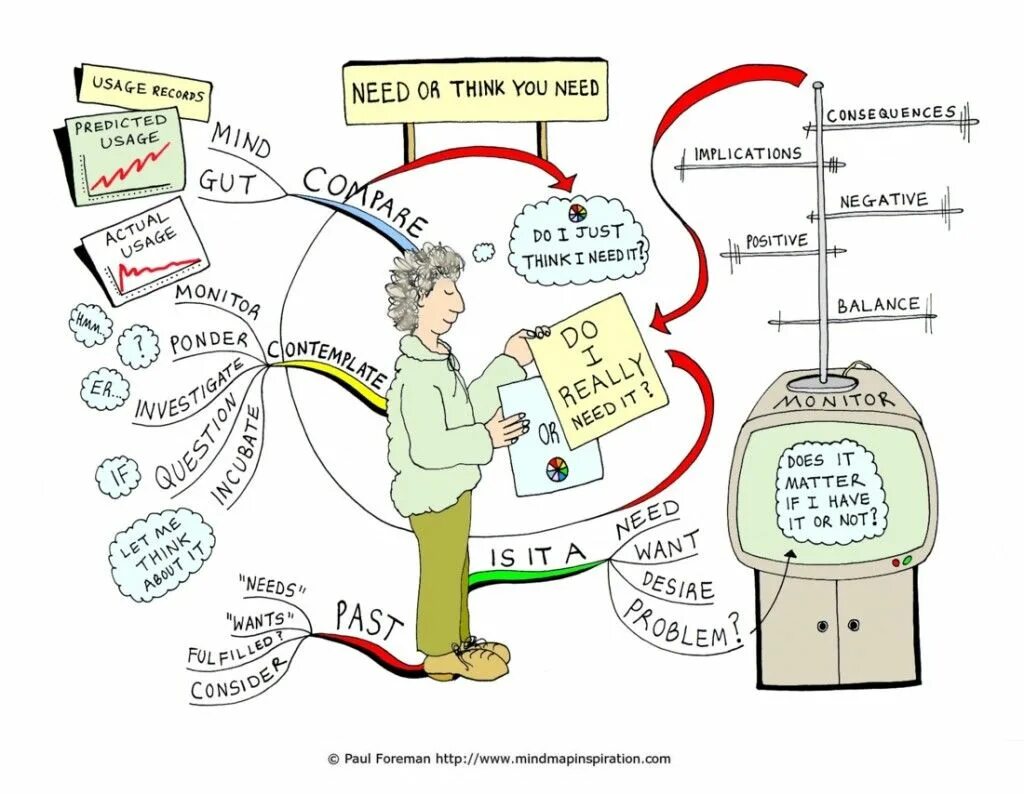 NEED OR THINK YOU NEED
USAGE RECORDS
PREDICTED
USAGE
ACTUAL
USAGE
MIND
GUT
COMPARE
DO I JUST
THINK I NEED IT?
DO
I
REALLY
NEED IT?
OR
MONITOR
PONDER
INVESTIGATE
QUESTION
INCUBATE
CONTEMPLATE
HMM...
?
ER...
IF
LET ME
THINK
ABOUT IT
"NEEDS"
"WANTS"
FULFILLED?
CONSIDER
PAST
IS IT A
NEED
WANT
DESIRE
PROBLEM?
CONSEQUENCES
IMPLICATIONS
NEGATIVE
POSITIVE
BALANCE
MONITOR
DOES IT
MATTER
IF I HAVE
IT OR NOT?
© Paul Foreman http://www.mindmapinspiration.com